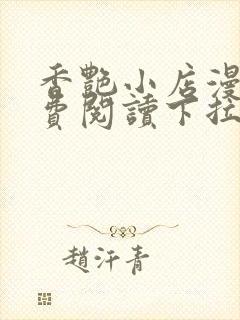 香艷小店漫
費閱讀下拉
趙汗青